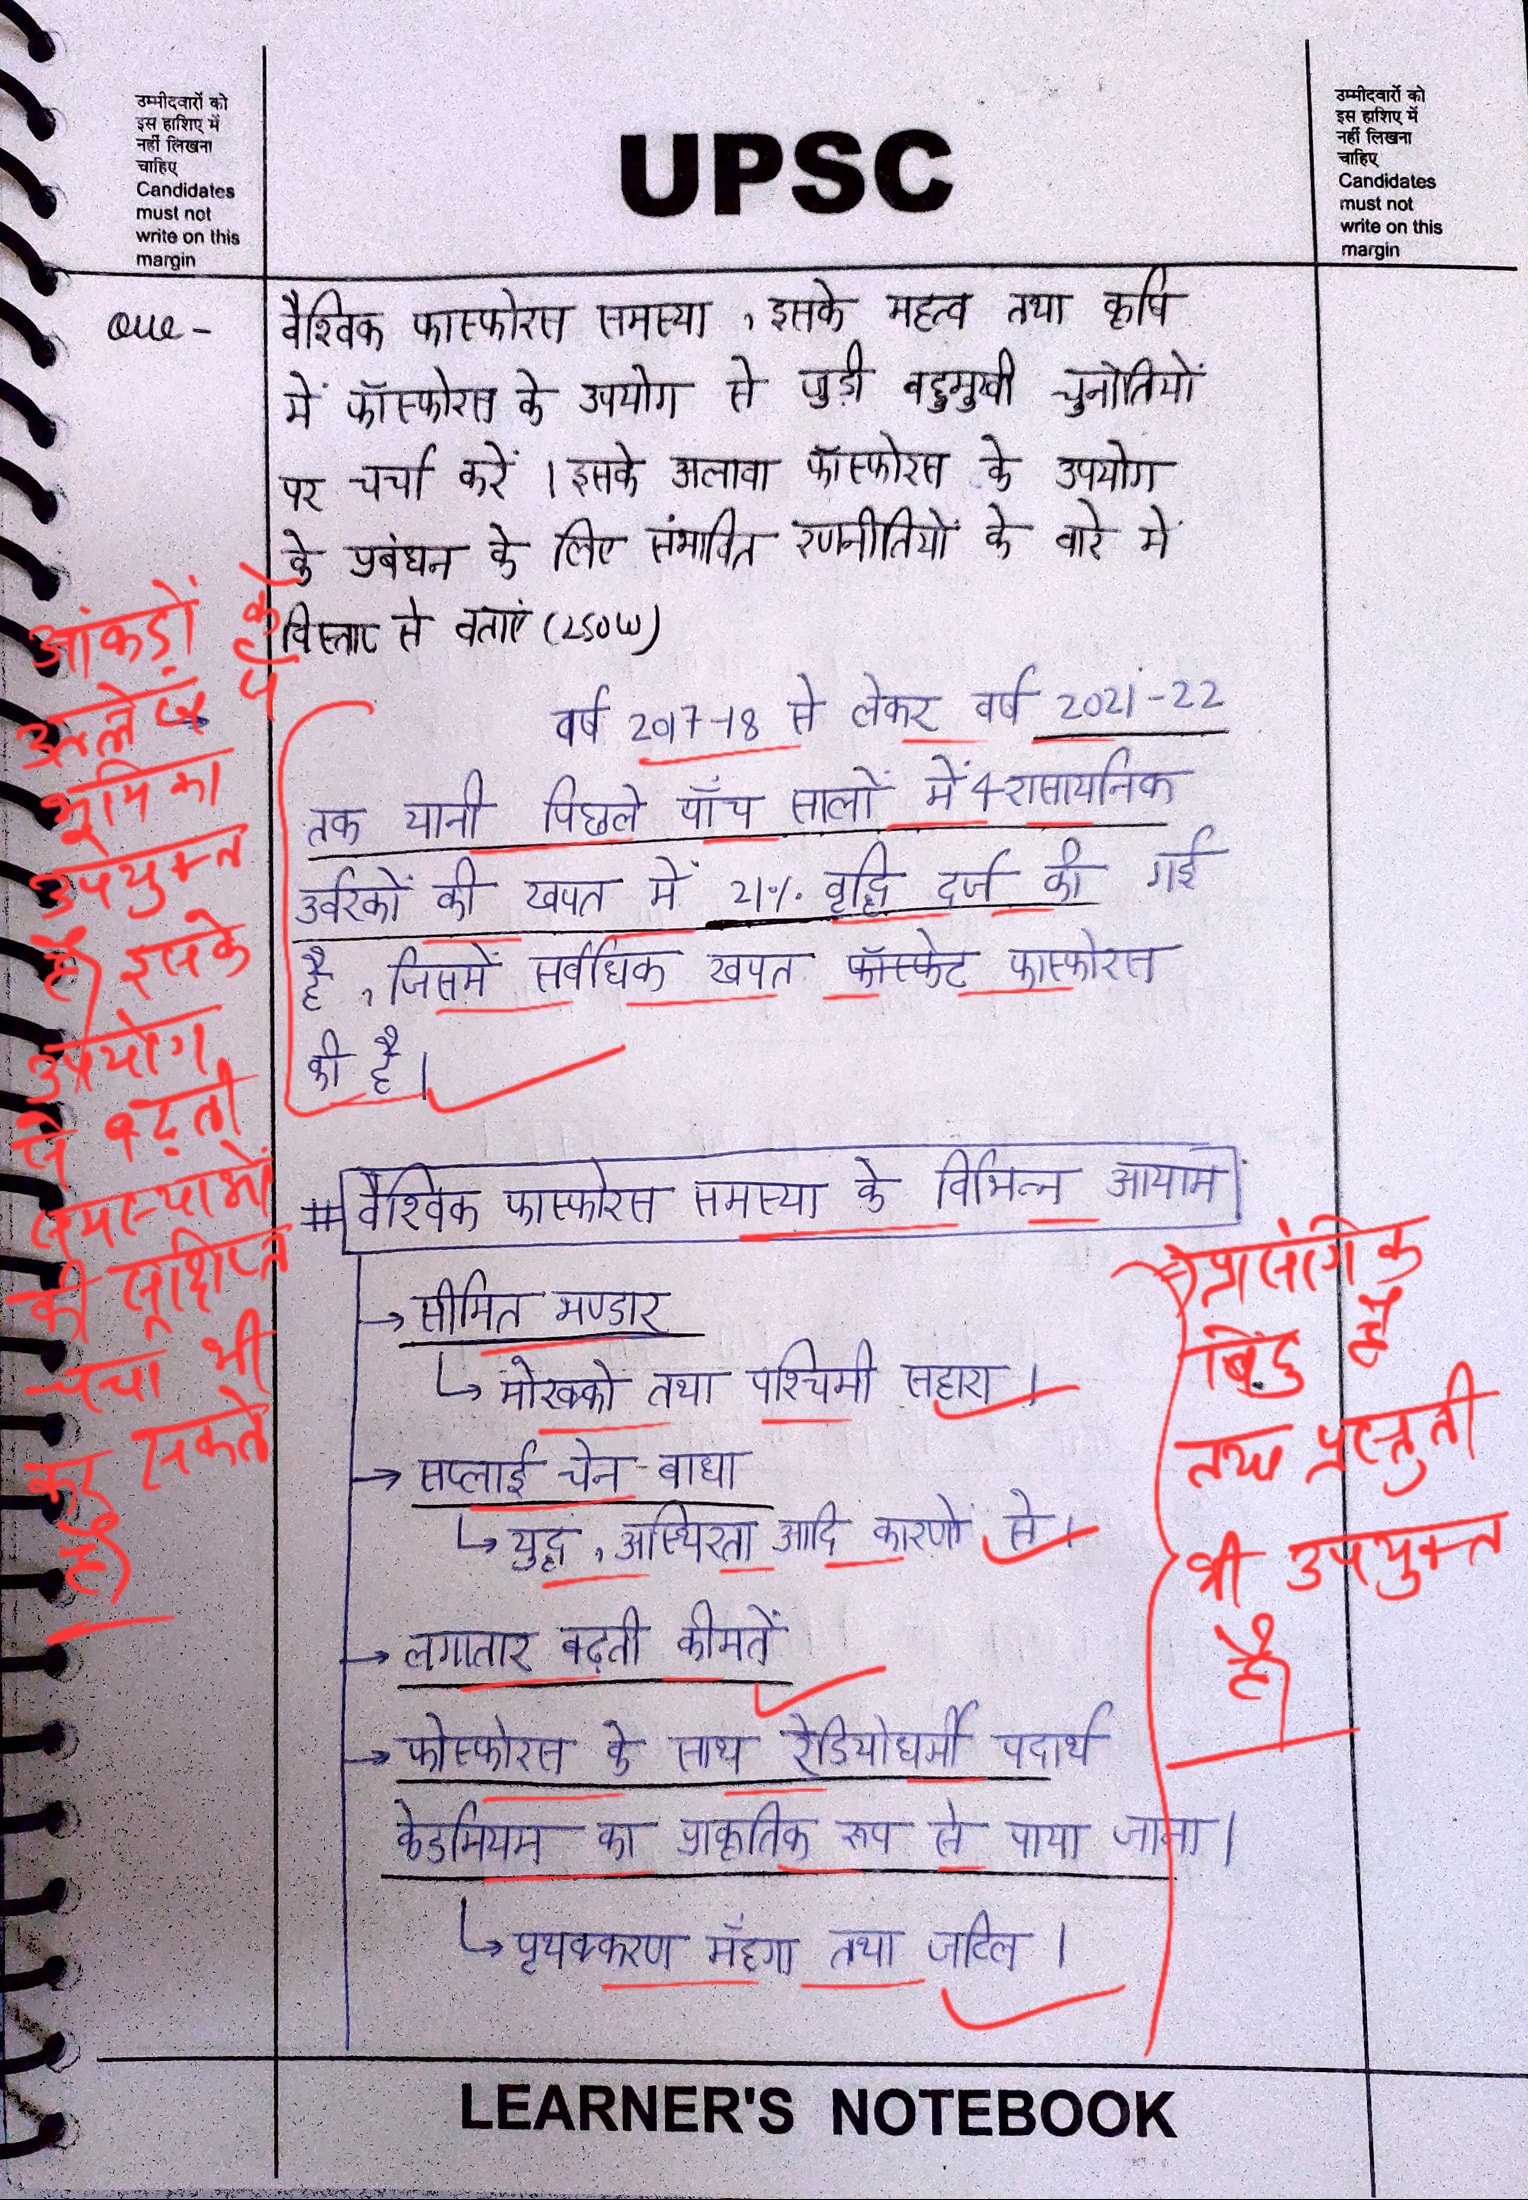 उम्मीदवारों को
इस हाशिए में
नहीं लिखना
चाहिए
Candidates
must not
write on this
margin
UPSC
उम्मीदवारों को
इस हाशिए में
नहीं लिखना
चाहिए
Candidates
must not
write on this
margin
Que -
वैश्विक फास्फोरस समस्या, इसके महत्व तथा कृषि
में फॉस्फोरस के उपयोग से जुड़ी बहुमुखी चुनौतियों
पर चर्चा करें। इसके अलावा फॉस्फोरस के उपयोग
के प्रबंधन के लिए संभावित रणनीतियों के बारे में
विस्तार से बताएं (250W)
वर्ष 2017-18 से लेकर वर्ष 2021-22
तक यानी पिछले पाँच सालों में 4 रासायनिक
उर्वरकों की खपत में 21% वृद्धि दर्ज की गई
है, जिसमें सर्वाधिक खपत फॉस्फेट फास्फोरस
की है।
आंकड़ों के
उल्लेख से
भूमिका
उपयुक्त
है, इसके
उपयोग
से बढ़ती
समस्याओं
की
चर्चा भी
कर सकते
हैं
# वैश्विक फास्फोरस समस्या के विभिन्न आयाम
→ सीमित भण्डार
↳ मोरक्को तथा पश्चिमी सहारा।
→ सप्लाई चेन बाधा
↳ युद्ध, अस्थिरता आदि कारणों से।
→ लगातार बढ़ती कीमतें
→ फोस्फोरस के साथ रेडियोधर्मी पदार्थ
केडमियम का प्राकृतिक रूप से पाया जाना।
↳ पृथक्करण मँहगा तथा जटिल।
प्रासंगिक
बिंदु हैं
तथा प्रस्तुती
भी उपयुक्त
है,
LEARNER'S NOTEBOOK